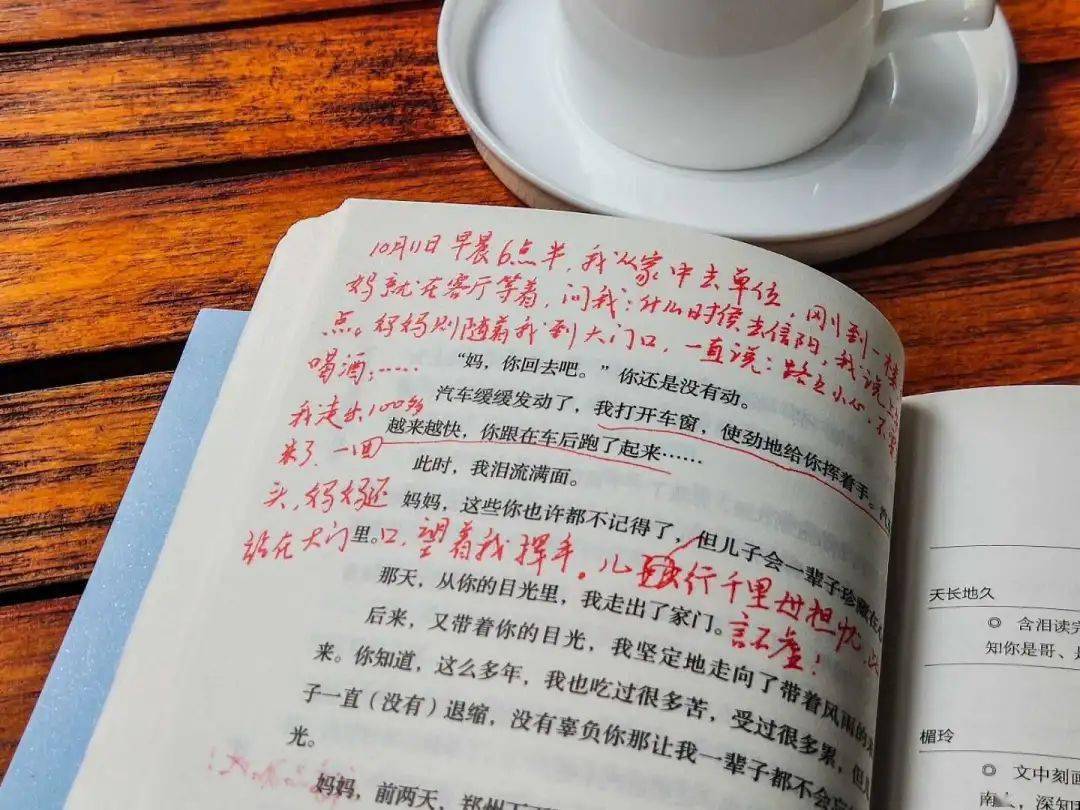 10月11日早晨6点半,我从家中去单位,刚到一楼
妈就在客厅等着,问我:什么时侯去信阳,我说上
点。妈妈则随着我到大门口,一直说:路上小心,不要
喝酒;……
“妈,你回去吧。”你还是没有动。
汽车缓缓发动了,我打开车窗,使劲地给你挥着手。汽
我走出100多
越来越快,你跟在车后跑了起来……
来了,一回
此时,我泪流满面。
头,妈妈还
妈妈,这些你也许都不记得了,但儿子会一辈子珍藏在心
里。
站在大门口,望着我挥手。儿行千里母担忧,此
言不虚!
那天,从你的目光里,我走出了家门。
后来,又带着你的目光,我坚定地走向了带着风雨的未
来。你知道,这么多年,我也吃过很多苦,受过很多累,但儿
子一直(没有)退缩,没有辜负你那让我一辈子都不会忘
光。
妈妈,前两天,郑州下
天长地久
◎ 含泪读完
知你是哥、是
媚玲
◎ 文中刻画
南 深知